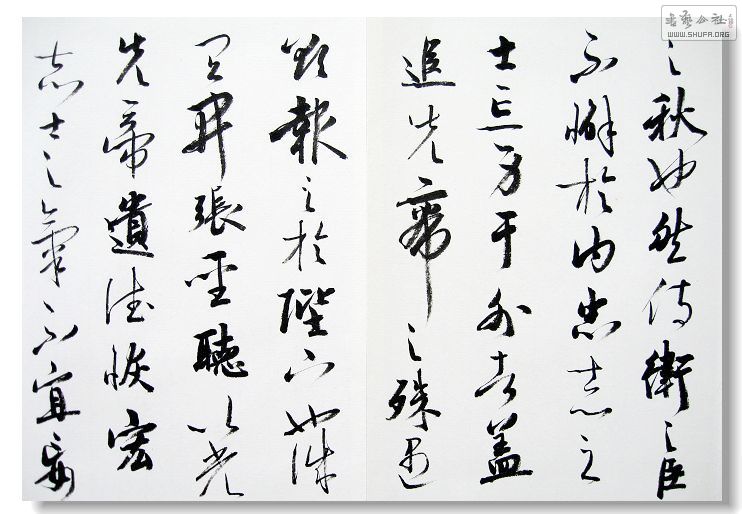 之秋也然侍衛之臣
不懈於内忠志之
士忘身于外者蓋
追先帝之殊遇
欲報之於陛下也誠
宜開張聖聽以光
先帝遺德恢宏
志士之氣不宜妄
書藝公社
WWW.SHUFA.ORG